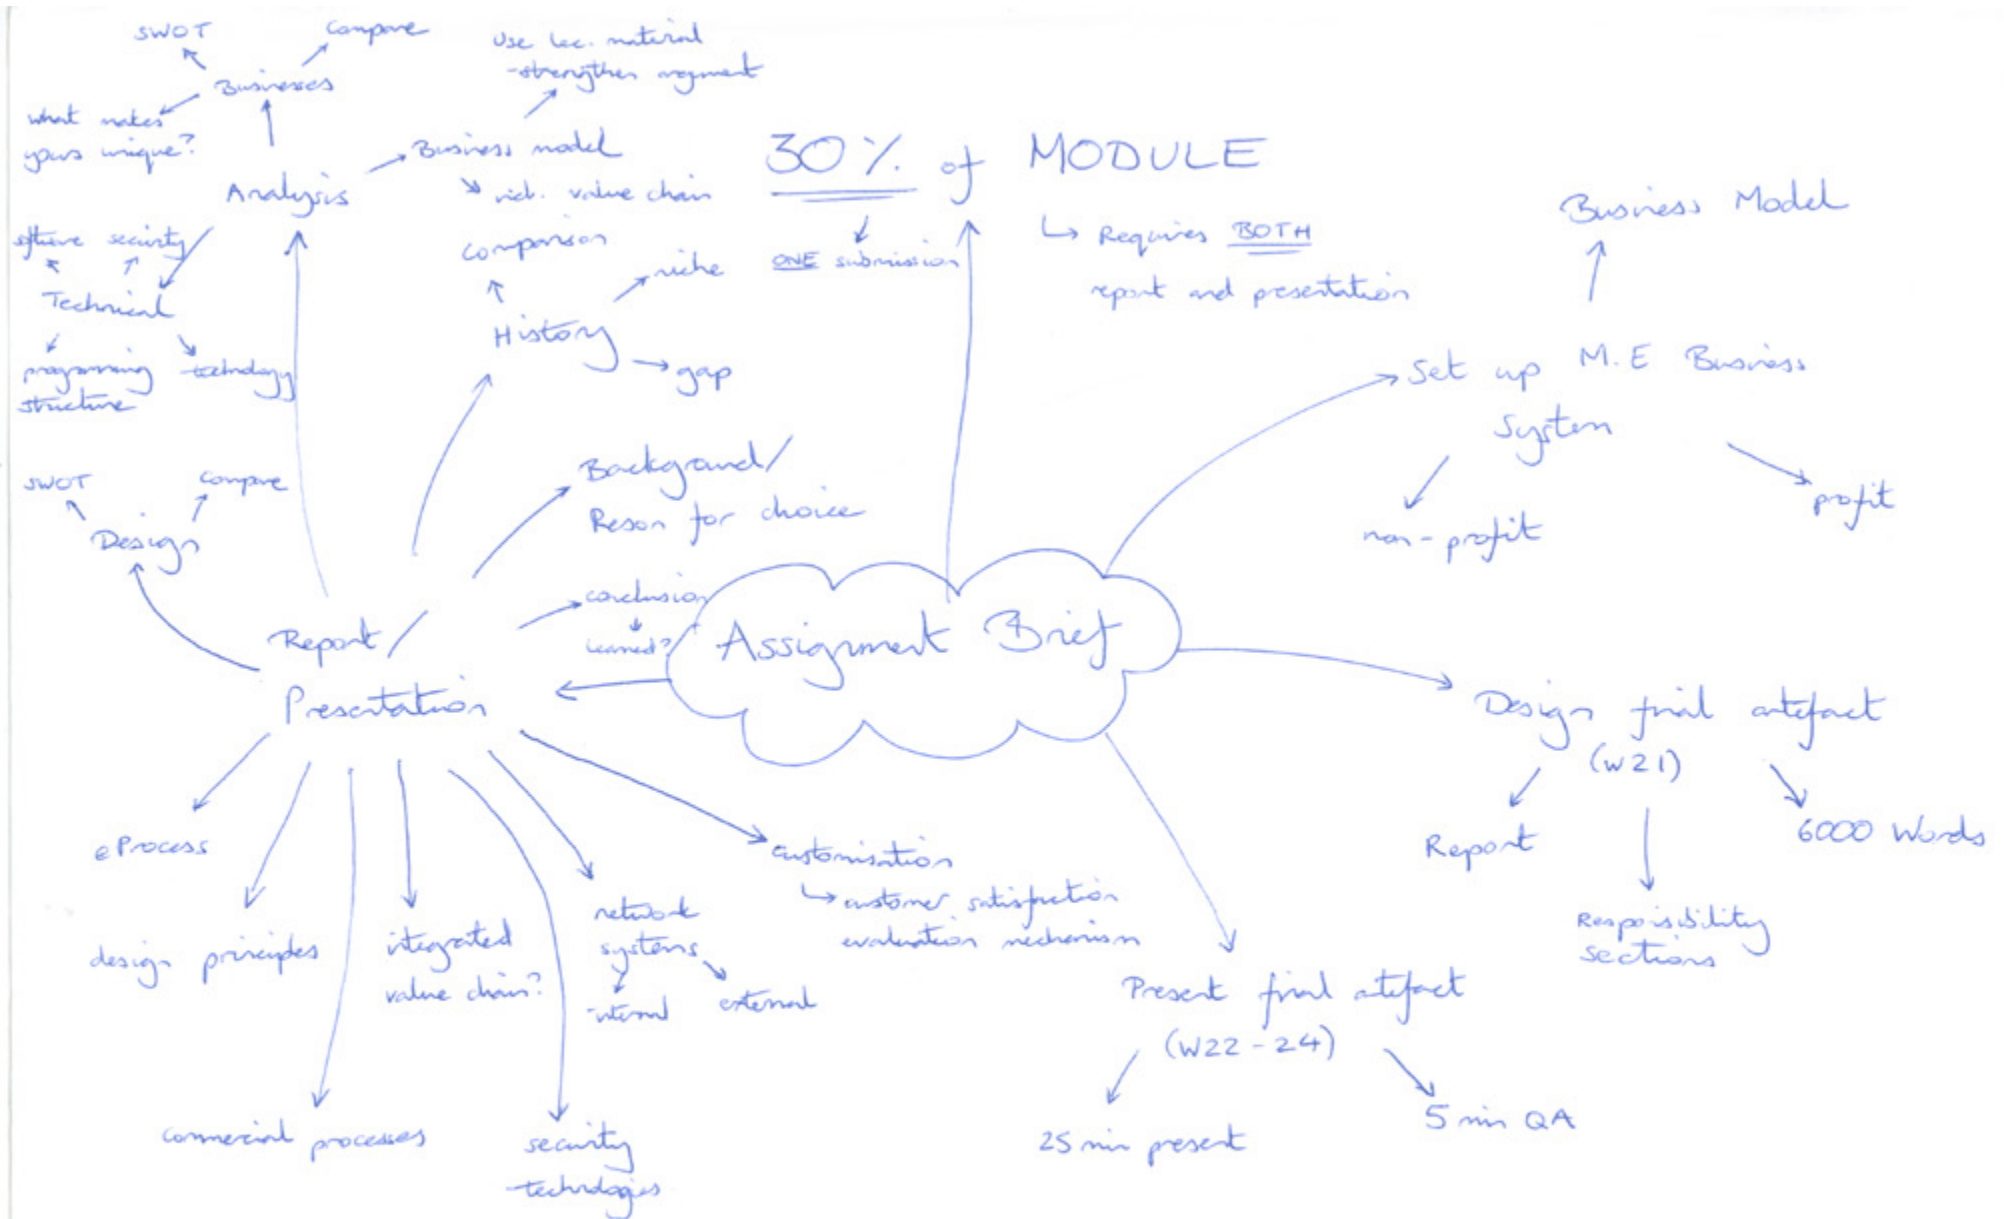 SWOT
Compare
Businesses
what makes
yours unique?
Use lec. material
-strengthen argument
Business model
value chain
Analysis
software security
Technical
programming
structure
technology
30% of MODULE
ONE submission
Requires BOTH
report and presentation
Comparison
niche
History
gap
Business Model
Set up M.E Business
System
non-profit
profit
SWOT
Compare
Design
Background/
Reson for choice
conclusion
learned?
Report/
Presentation
Assignment Brief
Design final artefact
(W21)
Report
6000 Words
Responsibility
sections
eProcess
design principles
integrated
value chain?
network
systems
internal
external
customisation
customer satisfaction
evaluation mechanism
commercial processes
security
technologies
Present final artefact
(W22-24)
25 min present
5 min QA